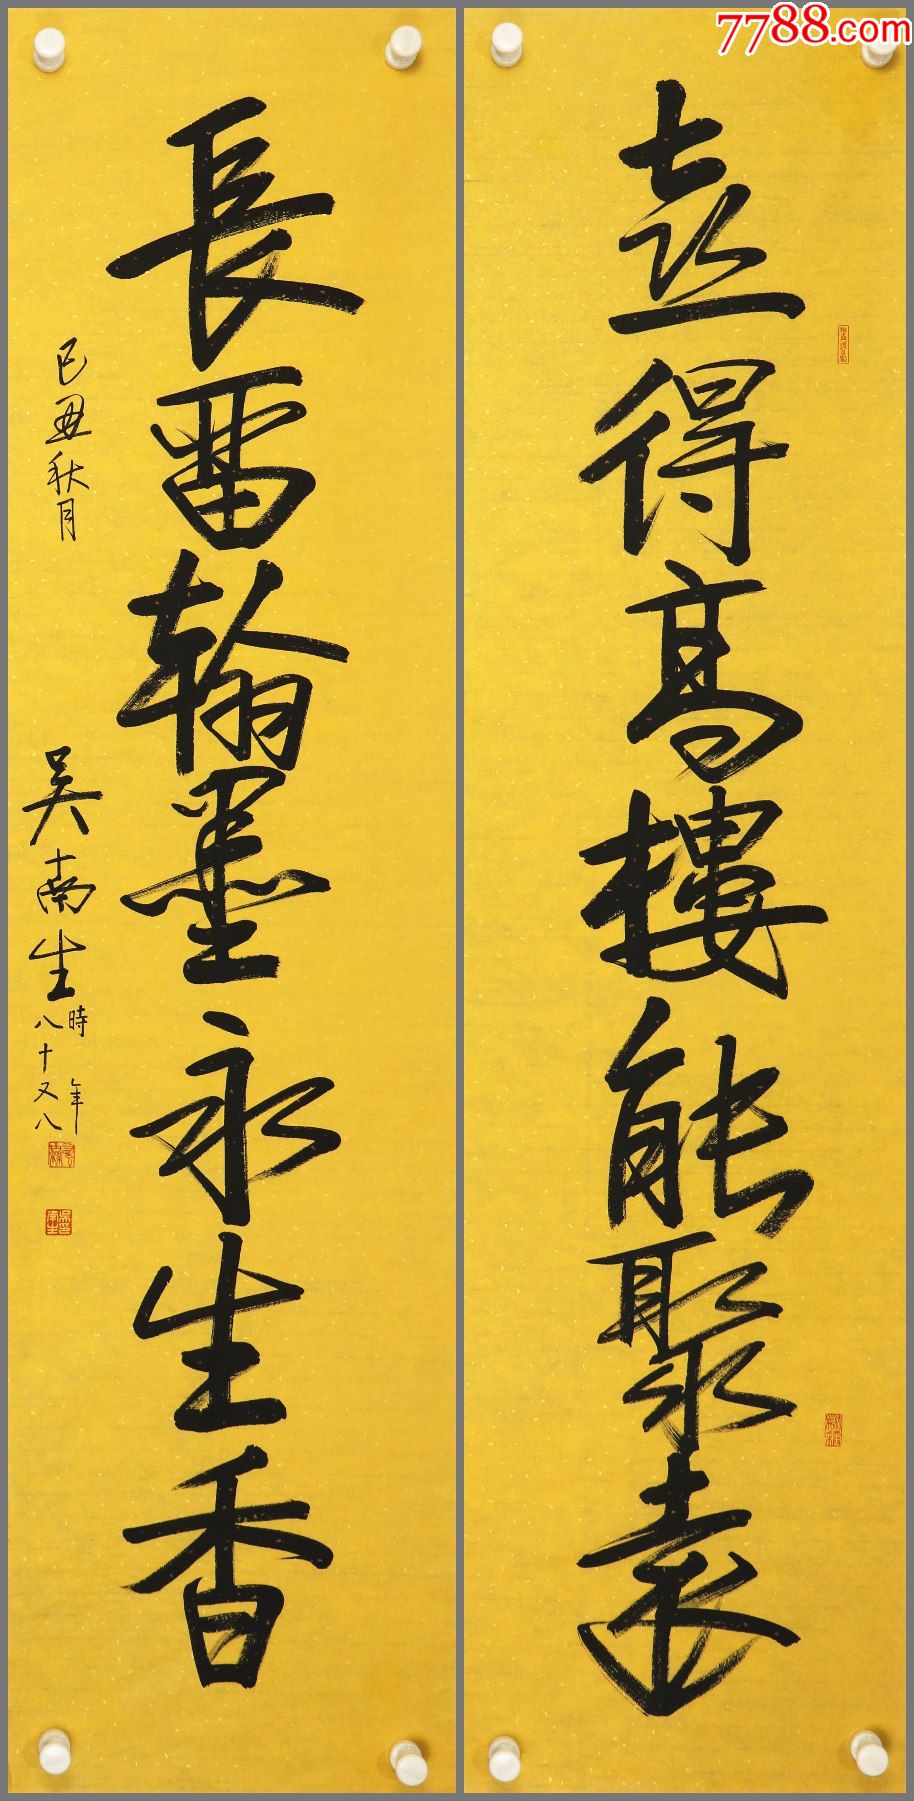 7788.com
喜得高樓能聚遠
長留翰墨永生香
己丑秋月
吳南生時年八十又八